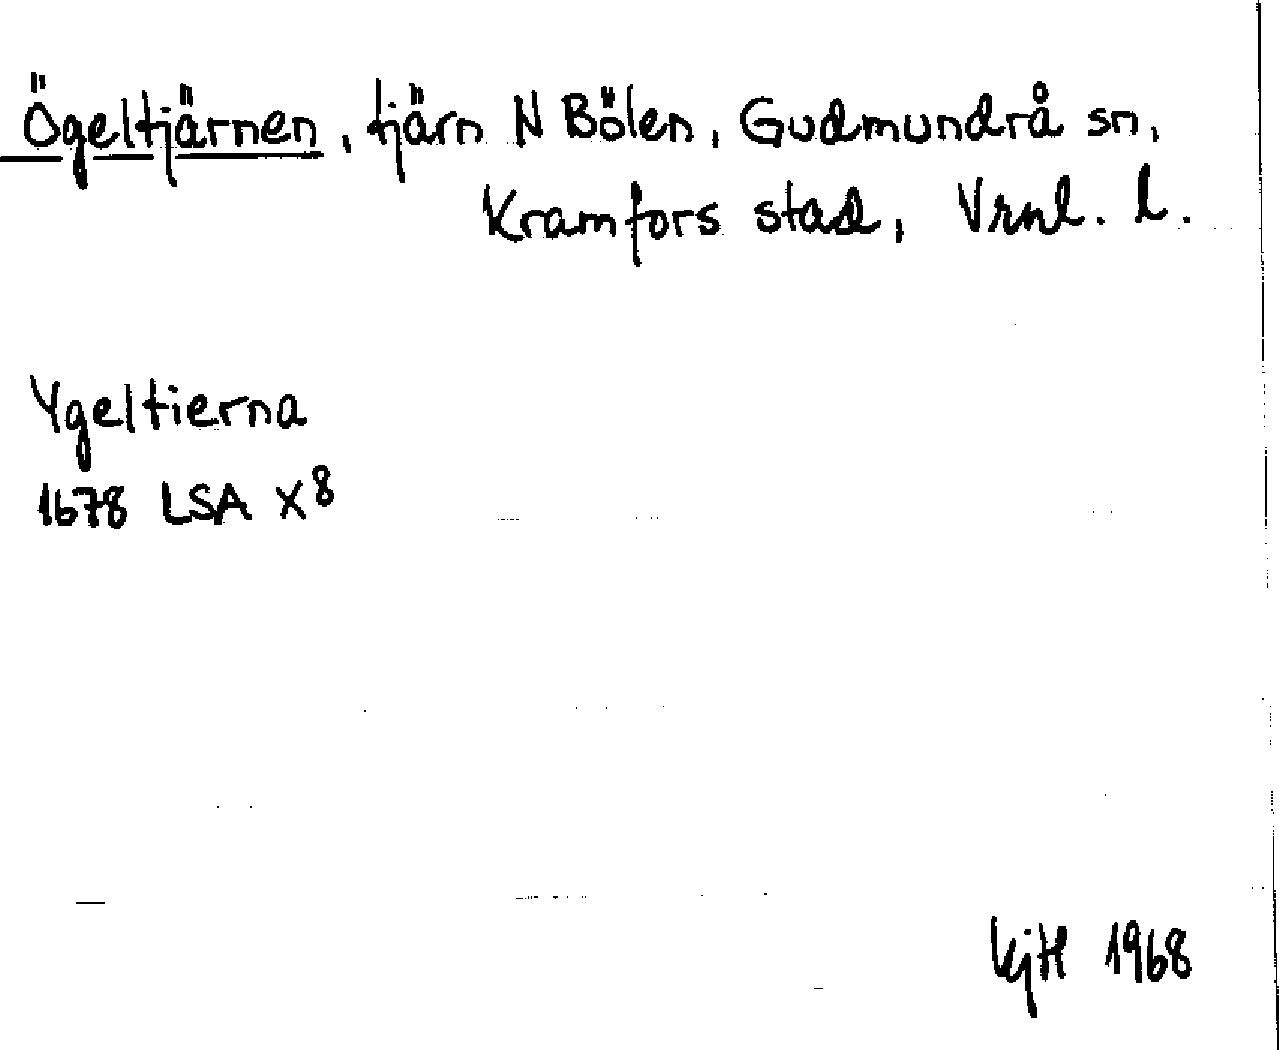 Ögeltjärnen, tjärn N Bölen, Gudmundrå sn,
Kramfors stad, Vrnl. l.
Ygeltierna
1678 LSA X8
KjH 1968